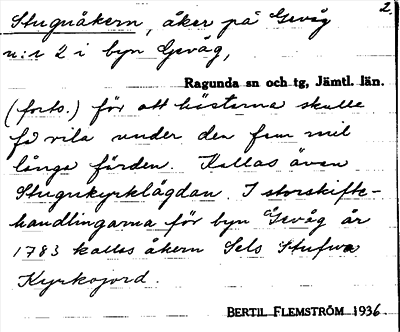 2.
Stugnåkern, åker på Gevåg
n:r 2 i byn Gevåg,
Ragunda sn och tg, Jämtl. län.
(forts.) för att hästarna skulle
få vila under den fem mil
långa färden. Kallas även
Stugukyrklägdan. I storskifte-
handlingarna för byn Gevåg år
1783 kallas åkern Sels Stufwu
Kyrkojord.
BERTIL FLEMSTRÖM 1936